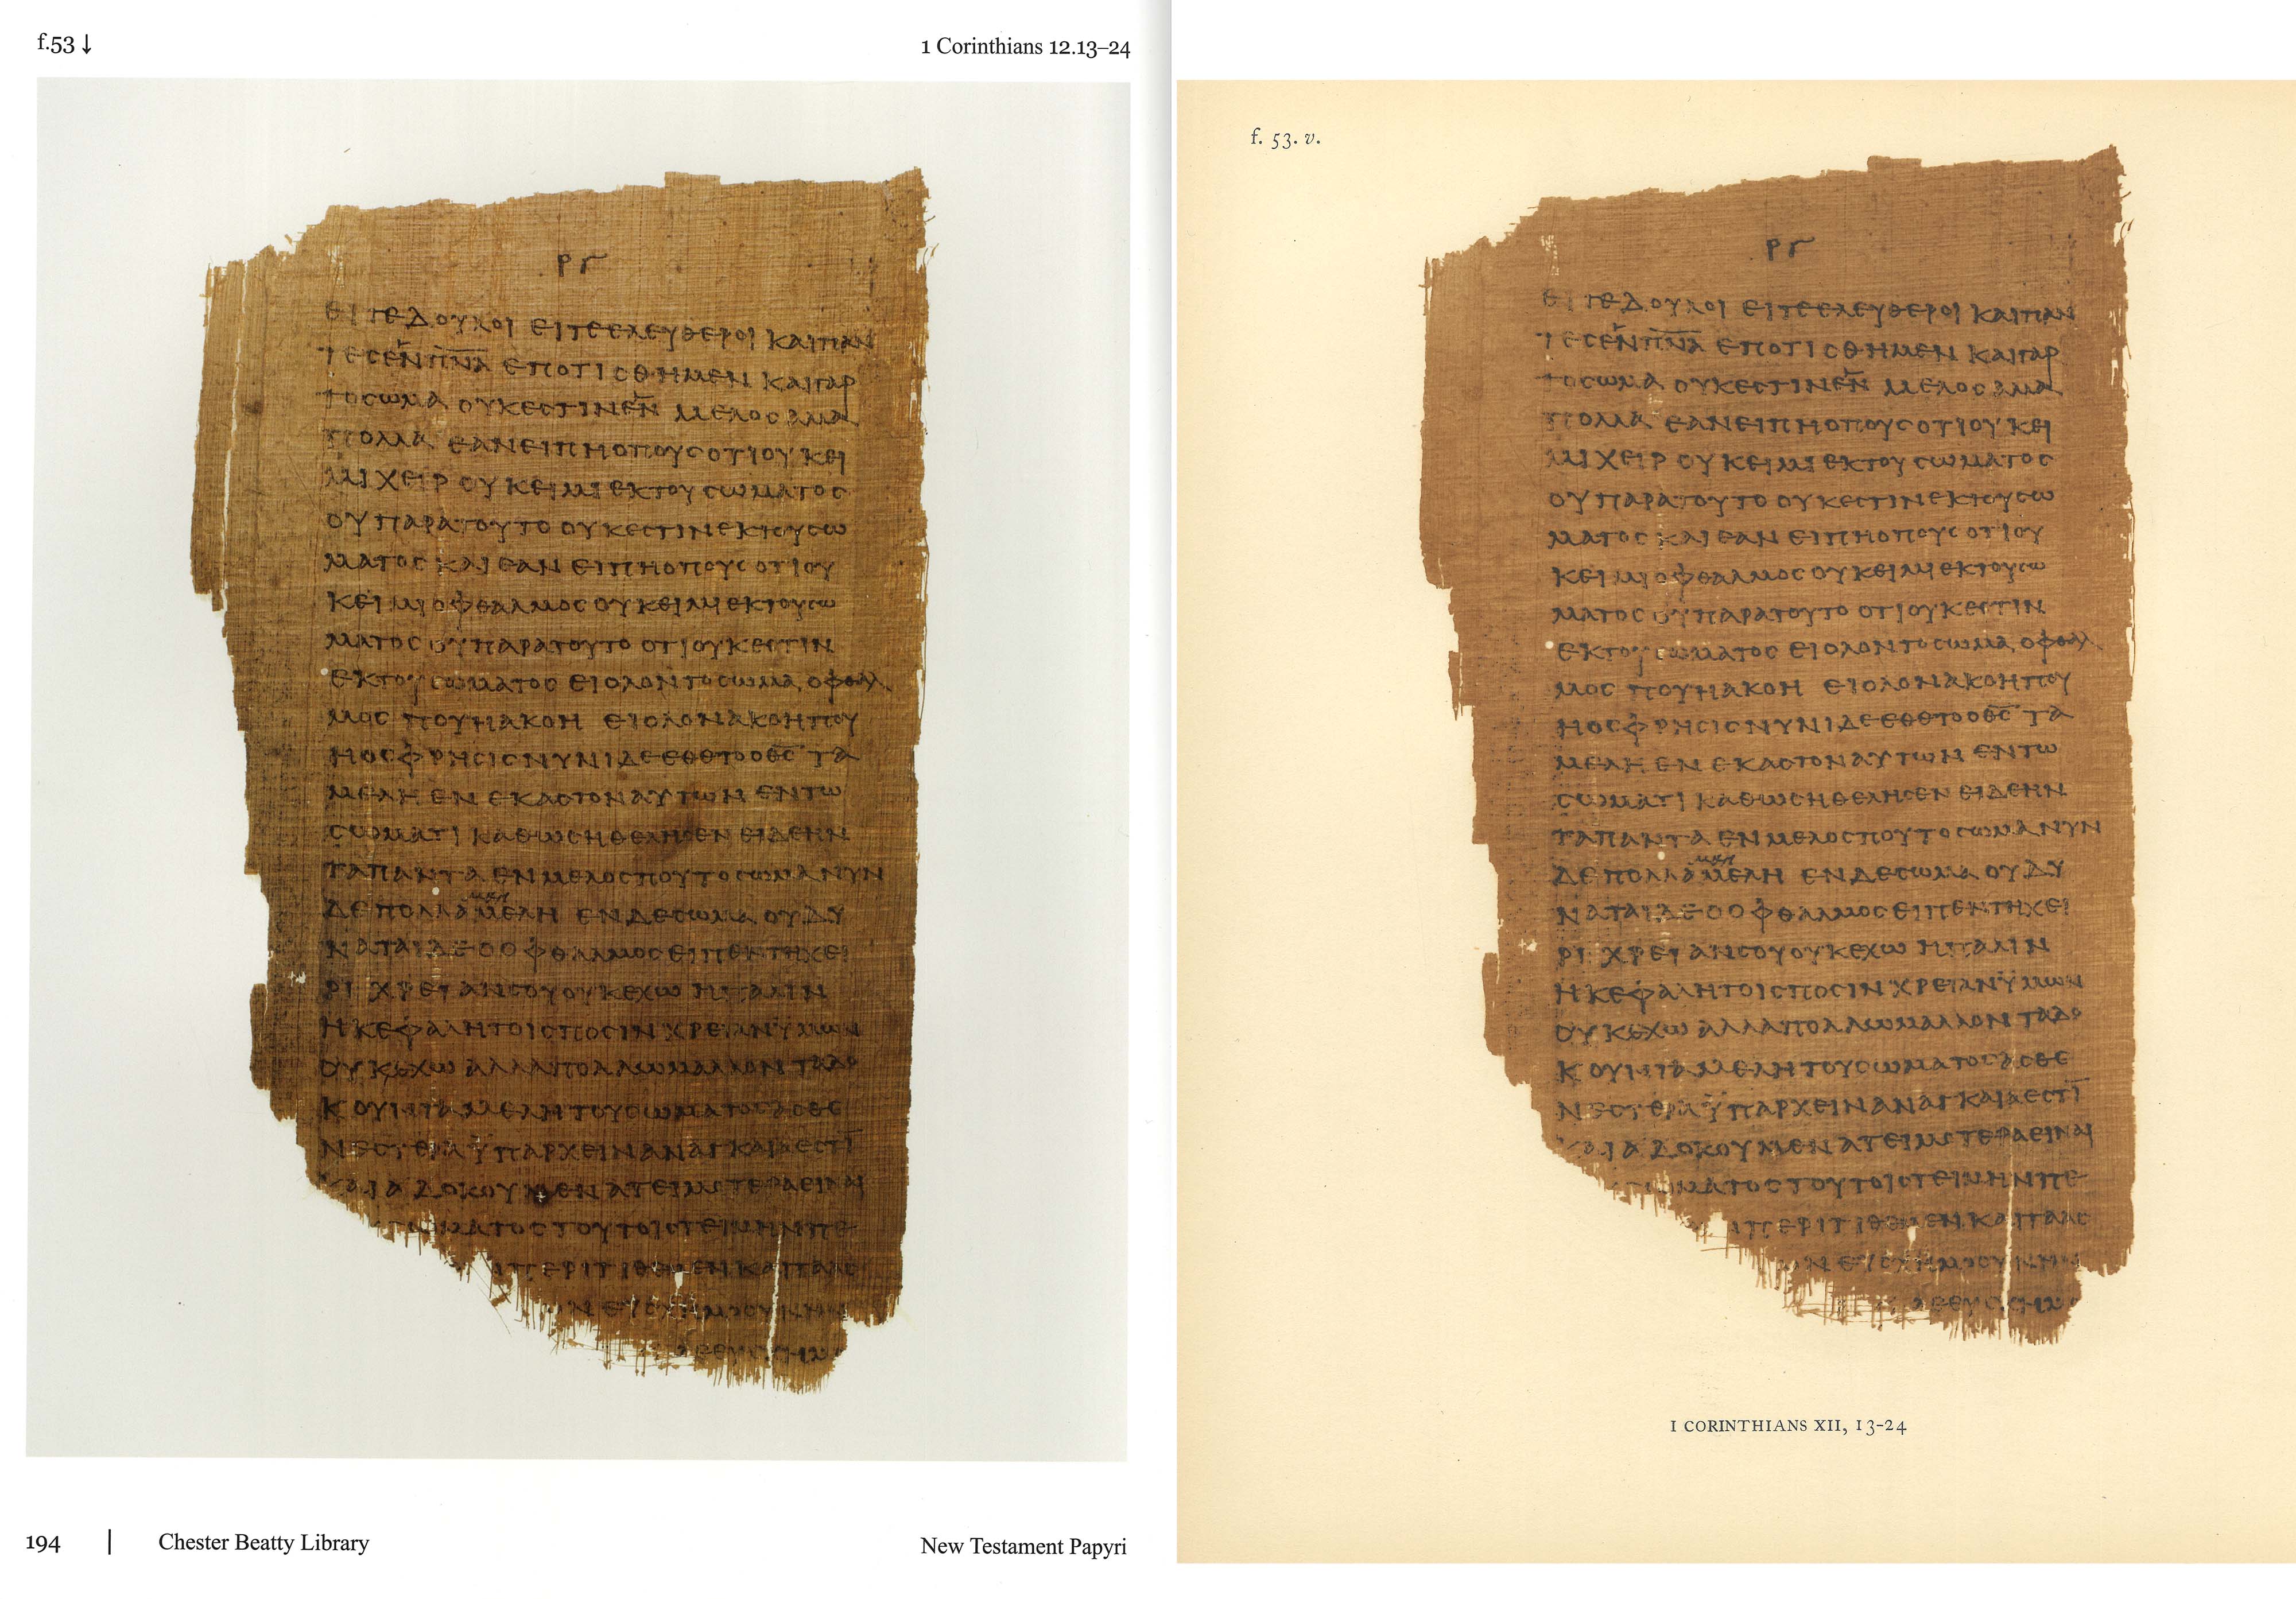 f.53 ↓
1 Corinthians 12.13–24
ΡΓ
ΕΙΤΕΔΟΥΛΟΙ ΕΙΤΕΕΛΕΥΘΕΡΟΙ ΚΑΙΠΑΝ
ΤΕϹΕΝΠΝΑ ΕΠΟΤΙϹΘΗΜΕΝ ΚΑΙΓΑΡ
ΤΟϹΩΜΑ ΟΥΚΕϹΤΙΝΕΝ ΜΕΛΟϹΑΛΛΑ
ΠΟΛΛΑ ΕΑΝΕΙΠΗΟΠΟΥϹΟΤΙΟΥΚΕΙ
ΜΙΧΕΙΡ ΟΥΚΕΙΜΙΕΚΤΟΥϹΩΜΑΤΟϹ
ΟΥΠΑΡΑΤΟΥΤΟΟΥΚΕϹΤΙΝΕΚΤΟΥϹΩ
ΜΑΤΟϹΚΑΙΕΑΝΕΙΠΗΟΠΟΥϹΟΤΙΟΥ
ΚΕΙΜΙΟΦΘΑΛΜΟϹΟΥΚΕΙΜΙΕΚΤΟΥϹΩ
ΜΑΤΟϹΟΥΠΑΡΑΤΟΥΤΟ ΟΤΙΟΥΚΕϹΤΙΝ
ΕΚΤΟΥϹΩΜΑΤΟϹ ΕΙΟΛΟΝΤΟϹΩΜΑΟΦΘΑΛ
ΜΟϹ ΠΟΥΗΑΚΟΗ ΕΙΟΛΟΝΑΚΟΗΠΟΥ
ΗΟϹΦΡΗϹΙϹΝΥΝΙΔΕΕΘΕΤΟΟΘϹ ΤΑ
ΜΕΛΗ ΕΝ ΕΚΑϹΤΟΝΑΥΤΩΝ ΕΝΤΩ
ϹΩΜΑΤΙ ΚΑΘΩϹΗΘΕΛΗϹΕΝ ΕΙΔΕΗΝ
ΤΑΠΑΝΤΑ ΕΝΜΕΛΟϹΠΟΥΤΟϹΩΜΑΝΥΝ
ΔΕΠΟΛΛΑΜΕΛΗ ΕΝΔΕϹΩΜΑ ΟΥΔΥ
ΝΑΤΑΙΔΕΟΟΦΘΑΛΜΟϹΕΙΠΕΝΤΗΧΕΙ
ΡΙ ΧΡΕΙΑΝϹΟΥΟΥΚΕΧΩ ΗΠΑΛΙΝ
ΗΚΕΦΑΛΗΤΟΙϹΠΟϹΙΝΧΡΕΙΑΝΥΜΩΝ
ΟΥΚΕΧΩ ΑΛΛΑΠΟΛΛΩΜΑΛΛΟΝ ΤΑΔΟ
ΚΟΥΝΤΑΜΕΛΗΤΟΥϹΩΜΑΤΟϹΑϹΘΕ
ΝΕϹΤΕΡΑΥΠΑΡΧΕΙΝΑΝΑΓΚΑΙΑΕϹΤΙ
ΚΑΙΑΔΟΚΟΥΜΕΝΑΤΕΙΜΟΤΕΡΑΕΙΝΑΙ
ΜΑΤΟϹΤΟΥΤΟΙϹΤΕΙΜΗΝΠΕ
ΠΕΡΙΤΙΘΕΜΕΝΚΑΙΤΑΑϹ
194 | Chester Beatty Library
New Testament Papyri
f. 53. v.
ΡΓ
ΕΙΤΕΔΟΥΛΟΙ ΕΙΤΕΕΛΕΥΘΕΡΟΙ ΚΑΙΠΑΝ
ΤΕϹΕΝΠΝΑ ΕΠΟΤΙϹΘΗΜΕΝ ΚΑΙΓΑΡ
ΤΟϹΩΜΑ ΟΥΚΕϹΤΙΝΕΝ ΜΕΛΟϹΑΛΛΑ
ΠΟΛΛΑ ΕΑΝΕΙΠΗΟΠΟΥϹΟΤΙΟΥΚΕΙ
ΜΙΧΕΙΡ ΟΥΚΕΙΜΙΕΚΤΟΥϹΩΜΑΤΟϹ
ΟΥΠΑΡΑΤΟΥΤΟΟΥΚΕϹΤΙΝΕΚΤΟΥϹΩ
ΜΑΤΟϹΚΑΙΕΑΝΕΙΠΗΟΠΟΥϹΟΤΙΟΥ
ΚΕΙΜΙΟΦΘΑΛΜΟϹΟΥΚΕΙΜΙΕΚΤΟΥϹΩ
ΜΑΤΟϹΟΥΠΑΡΑΤΟΥΤΟ ΟΤΙΟΥΚΕϹΤΙΝ
ΕΚΤΟΥϹΩΜΑΤΟϹ ΕΙΟΛΟΝΤΟϹΩΜΑΟΦΘΑΛ
ΜΟϹ ΠΟΥΗΑΚΟΗ ΕΙΟΛΟΝΑΚΟΗΠΟΥ
ΗΟϹΦΡΗϹΙϹΝΥΝΙΔΕΕΘΕΤΟΟΘϹ ΤΑ
ΜΕΛΗ ΕΝ ΕΚΑϹΤΟΝΑΥΤΩΝ ΕΝΤΩ
ϹΩΜΑΤΙ ΚΑΘΩϹΗΘΕΛΗϹΕΝ ΕΙΔΕΗΝ
ΤΑΠΑΝΤΑ ΕΝΜΕΛΟϹΠΟΥΤΟϹΩΜΑΝΥΝ
ΔΕΠΟΛΛΑΜΕΛΗ ΕΝΔΕϹΩΜΑ ΟΥΔΥ
ΝΑΤΑΙΔΕΟΟΦΘΑΛΜΟϹΕΙΠΕΝΤΗΧΕΙ
ΡΙ ΧΡΕΙΑΝϹΟΥΟΥΚΕΧΩ ΗΠΑΛΙΝ
ΗΚΕΦΑΛΗΤΟΙϹΠΟϹΙΝΧΡΕΙΑΝΥΜΩΝ
ΟΥΚΕΧΩ ΑΛΛΑΠΟΛΛΩΜΑΛΛΟΝ ΤΑΔΟ
ΚΟΥΝΤΑΜΕΛΗΤΟΥϹΩΜΑΤΟϹΑϹΘΕ
ΝΕϹΤΕΡΑΥΠΑΡΧΕΙΝΑΝΑΓΚΑΙΑΕϹΤΙ
ΚΑΙΑΔΟΚΟΥΜΕΝΑΤΕΙΜΟΤΕΡΑΕΙΝΑΙ
ΜΑΤΟϹΤΟΥΤΟΙϹΤΕΙΜΗΝΠΕ
ΠΕΡΙΤΙΘΕΜΕΝΚΑΙΤΑΑϹ
I CORINTHIANS XII, 13-24